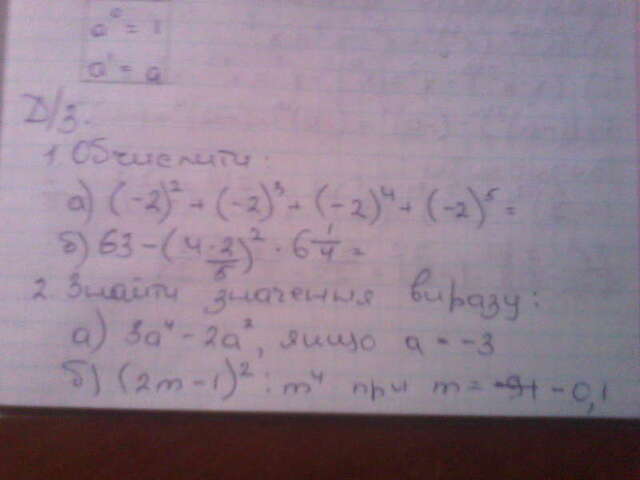 a⁰ = 1
a¹ = a
Д/З.
1. Обчислити:
а) (-2)² + (-2)³ + (-2)⁴ + (-2)⁵ =
б) 63 - (4 · 2/5)² · 6 1/4 =
2. Знайти значення виразу:
а) 3a⁴ - 2a², якщо a = -3
б) (2m - 1)² : m⁴ при m = -0,1